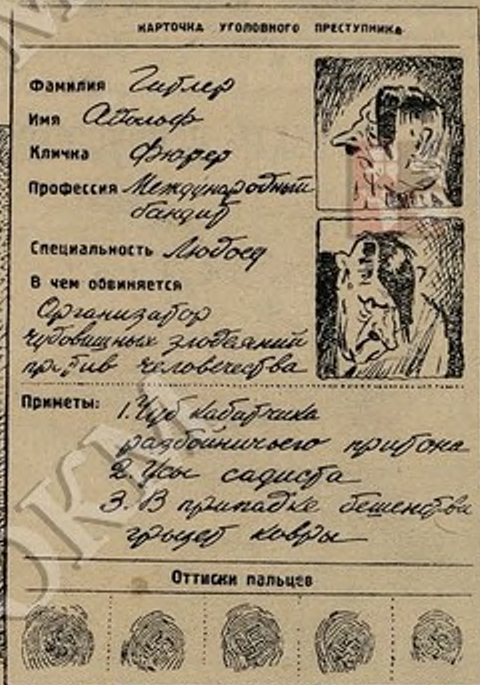 КАРТОЧКА УГОЛОВНОГО ПРЕСТУПНИКА
Фамилия Гитлер
Имя Адольф
Кличка Фюрер
Профессия Международный
бандит
Специальность Людоед
В чем обвиняется
Организатор
чудовищных злодеяний
против человечества
Приметы: 1. Чуб кабатчика
разбойничьего притона
2. Усы садиста
3. В припадке бешенства
грызет ковры
Оттиски пальцев